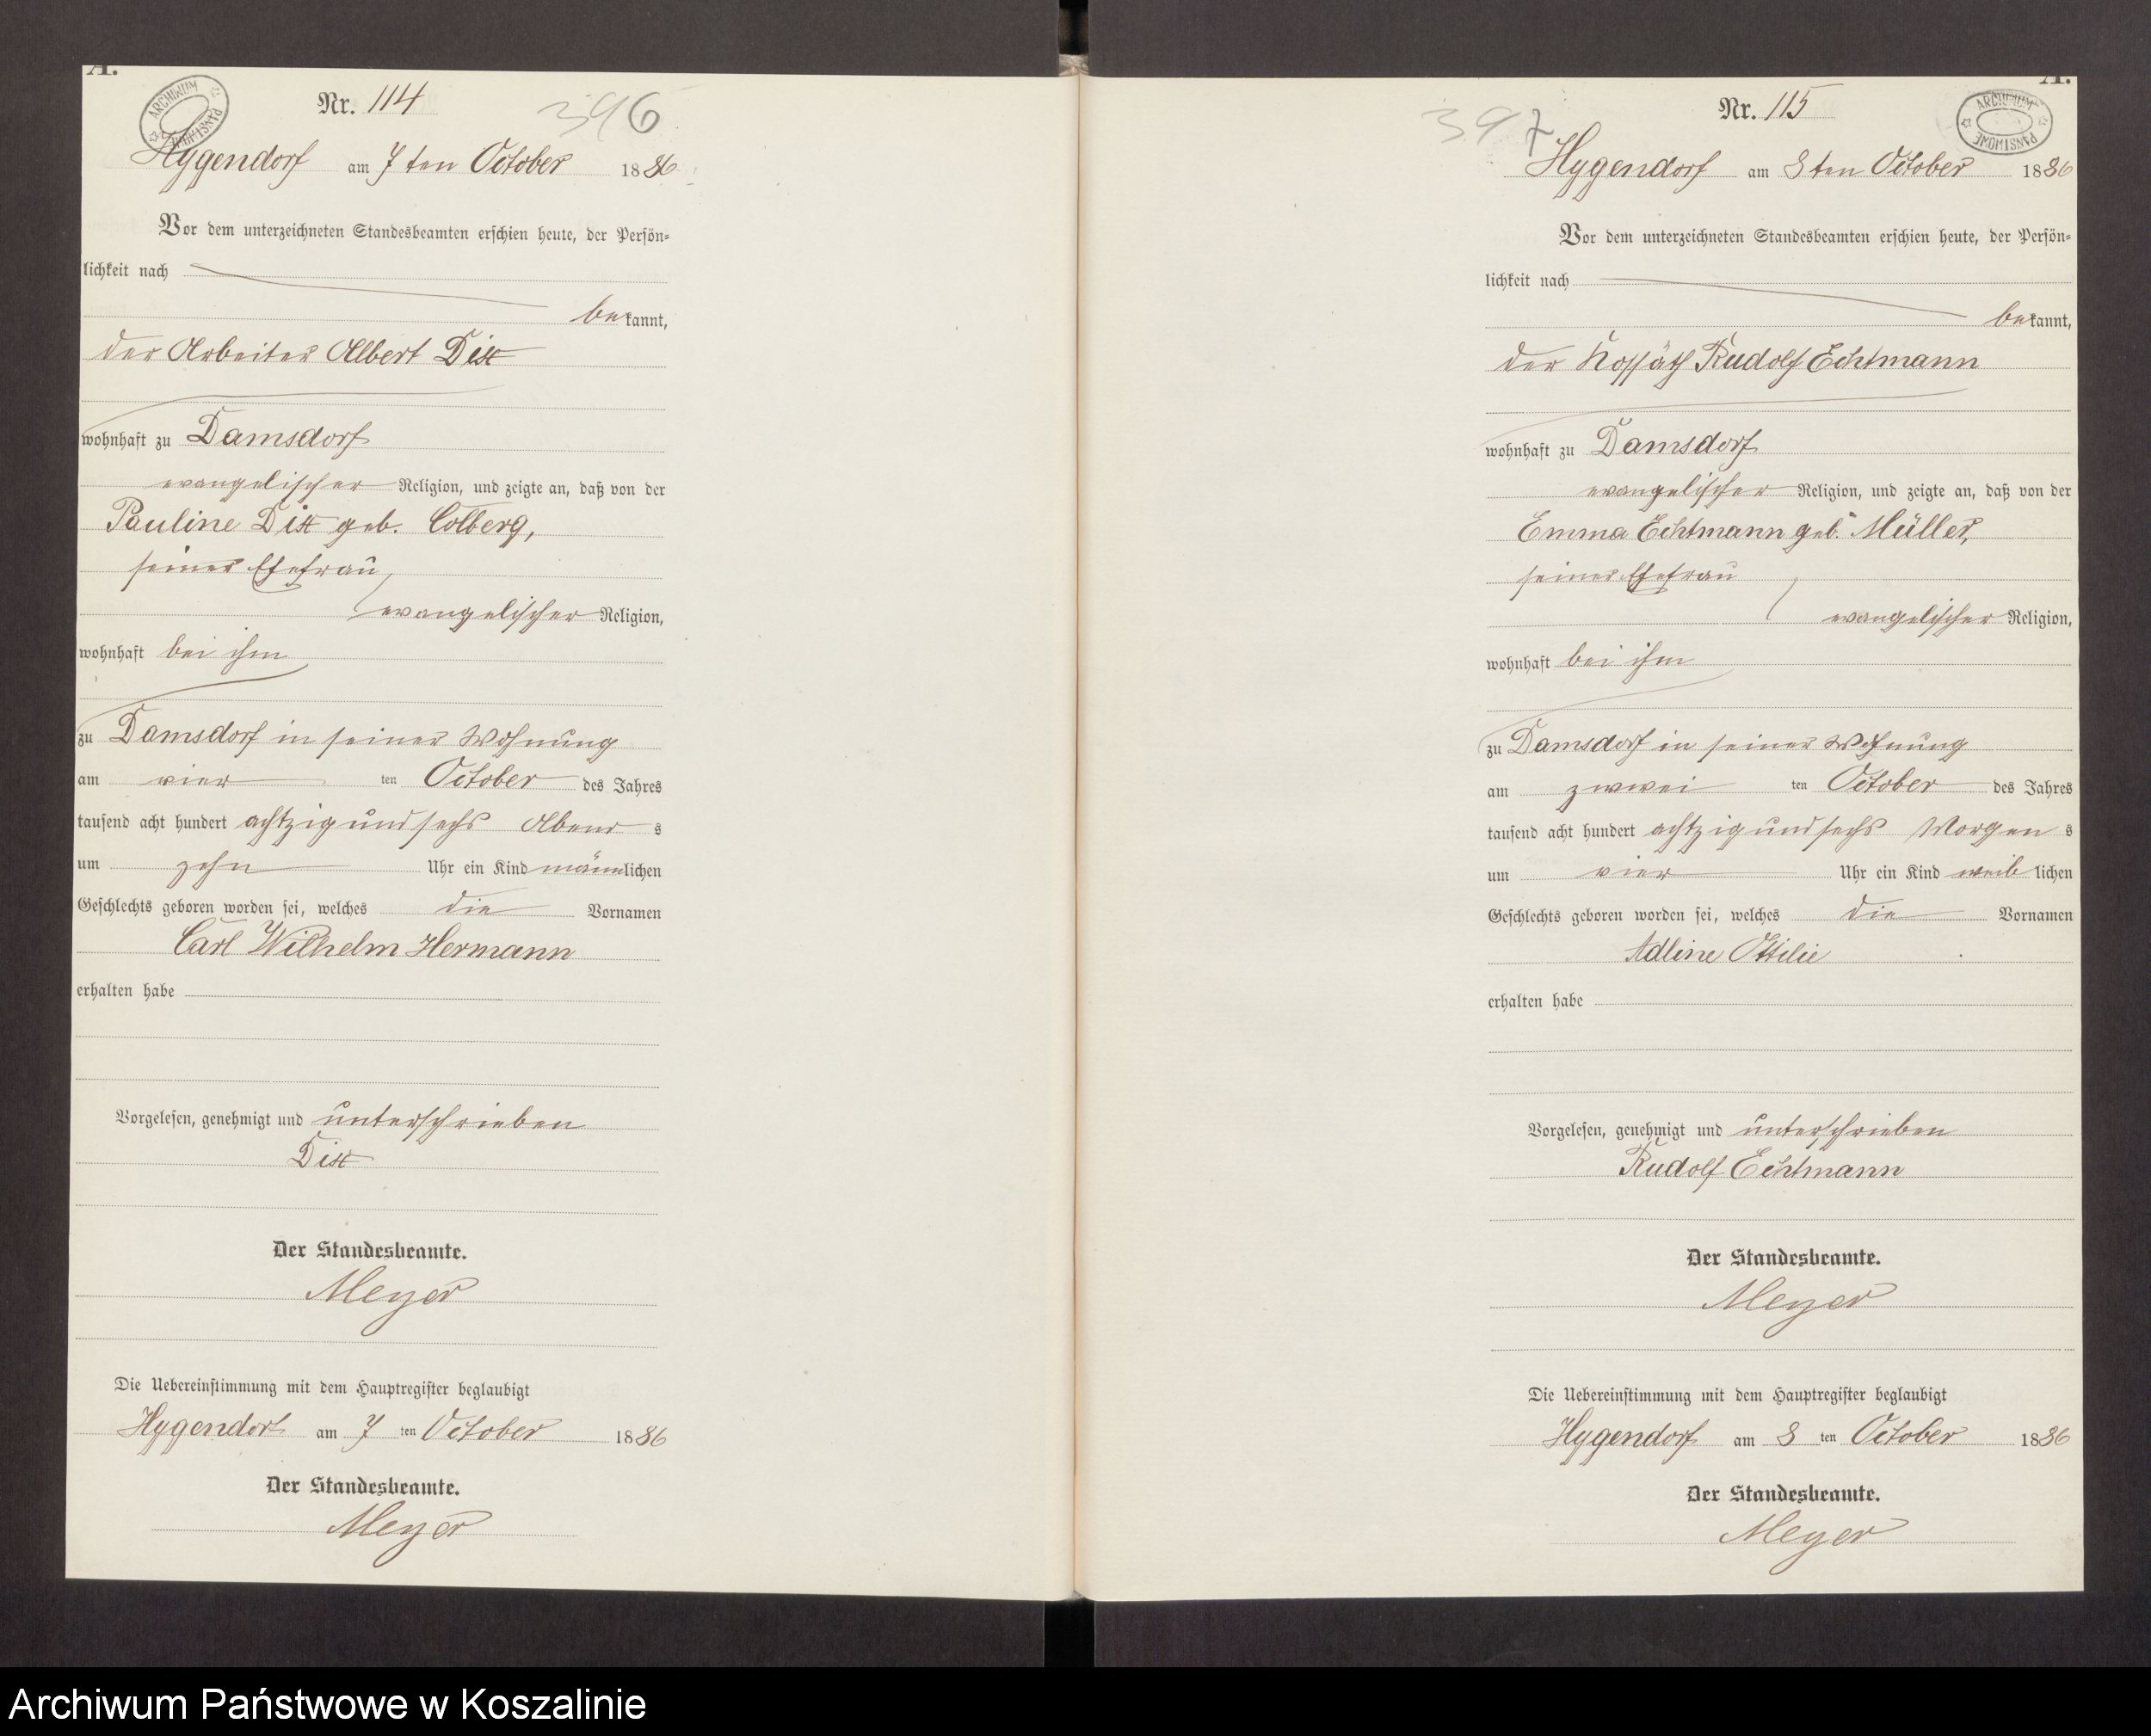 A.
ARCHIWUM PAŃSTWOWE
Nr. 114
396
Hygendorf am 7ten October 1886
Vor dem unterzeichneten Standesbeamten erschien heute, der Persön-
lichkeit nach
bekannt,
der Arbeiter Albert
wohnhaft zu Damsdorf
evangelischer Religion, und zeigte an, daß von der
Pauline geb. Colberg,
seiner Ehefrau,
evangelischer Religion,
wohnhaft bei ihm
zu Damsdorf in seiner Wohnung
am vier ten October des Jahres
tausend acht hundert achtzig und sechs Abend s
um zehn Uhr ein Kind männlichen
Geschlechts geboren worden sei, welches die Vornamen
Carl Wilhelm Hermann
erhalten habe
Vorgelesen, genehmigt und unterschrieben
Der Standesbeamte.
Meyer
Die Uebereinstimmung mit dem Hauptregister beglaubigt
Hygendorf am 7 ten October 1886
Der Standesbeamte.
Meyer
A.
ARCHIWUM PAŃSTWOWE
Nr. 115
397
Hygendorf am 8ten October 1886
Vor dem unterzeichneten Standesbeamten erschien heute, der Persön-
lichkeit nach
bekannt,
der Kossäth Rudolf Echtmann
wohnhaft zu Damsdorf
evangelischer Religion, und zeigte an, daß von der
Emma Echtmann geb. Müller,
seiner Ehefrau
evangelischer Religion,
wohnhaft bei ihm
zu Damsdorf in seiner Wohnung
am zwei ten October des Jahres
tausend acht hundert achtzig und sechs Morgen s
um vier Uhr ein Kind weiblichen
Geschlechts geboren worden sei, welches die Vornamen
Adline Ottilie
erhalten habe
Vorgelesen, genehmigt und unterschrieben
Rudolf Echtmann
Der Standesbeamte.
Meyer
Die Uebereinstimmung mit dem Hauptregister beglaubigt
Hygendorf am 8 ten October 1886
Der Standesbeamte.
Meyer
Archiwum Państwowe w Koszalinie